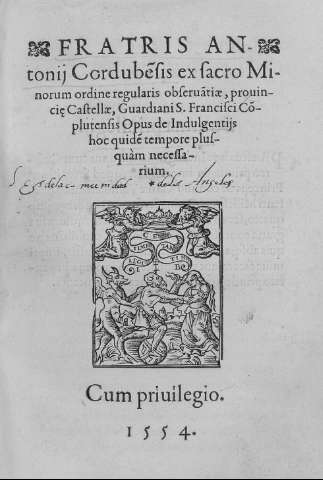 FRATRIS AN-
tonij Cordubẽsis ex sacro Mi-
norum ordine regularis obseruãtiæ, prouin-
cię Castellæ, Guardiani S. Francisci Cõ-
plutensis Opus de Indulgentijs
hoc quidẽ tempore plus-
quàm necessa-
rium.
de los Angeles
Cum priuilegio.
1554.